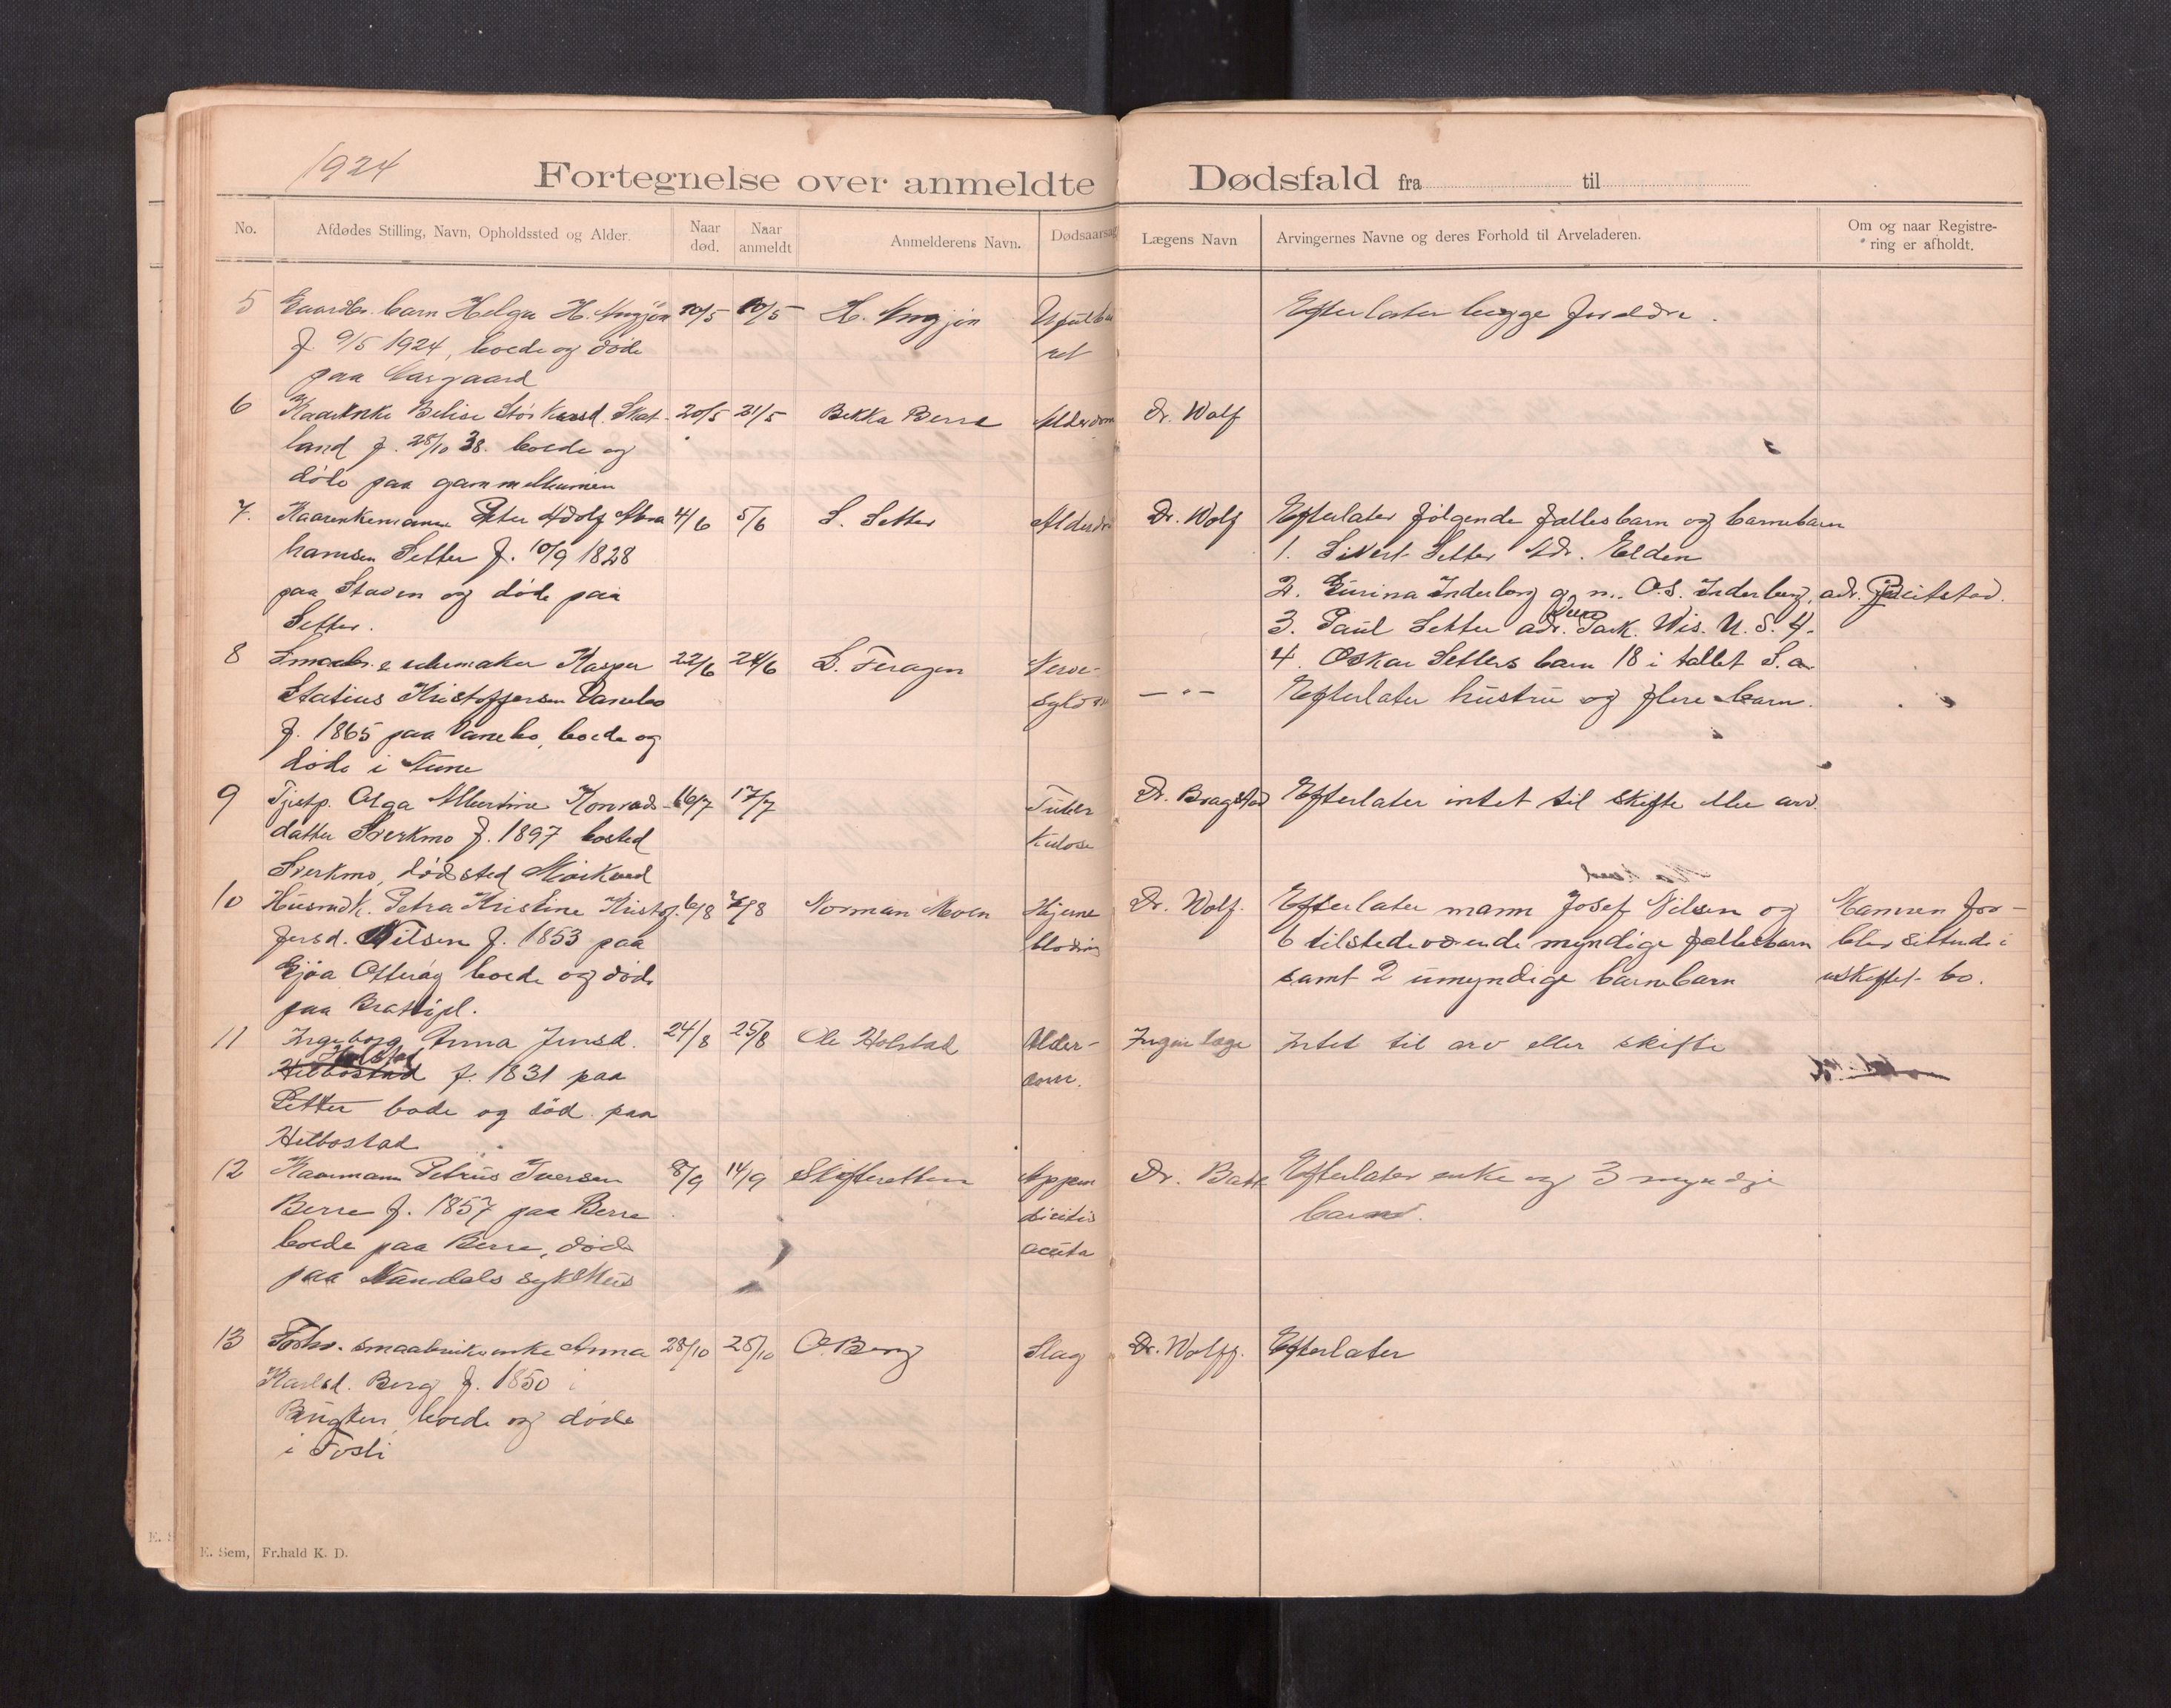 1924
Fortegnelse over anmeldte Dødsfald fra til
No. Afdødes Stilling, Navn, Opholdssted og Alder. Naar død. Naar anmeldt Anmelderens Navn. Dødsaarsag Lægens Navn Arvingernes Navne og deres Forhold til Arveladeren. Om og naar Registre-
ring er afholdt.
5 Gaardbr. barn Helga H. 10/5 10/5 H. Efterlater begge foreldre.
f. 9/5 1924, boede og døde
paa
6 Kaarenke Skat- 20/5 21/5 Bekka Berre Alderdom Dr. Wolf
land f. 28/10 38. boede og
døde paa
7. Kaarenkemann Peter Adolf Abra 4/6 5/6 S. Setter Alderdo Dr. Wolf Efterlater følgende fællesbarn og barnebarn
hamsen Setter f. 10/9 1828 1. Sivert Setter Adr. Elden
paa Staven og døde paa 2. Gurina Inderberg g. m. O.S. Inderberg, adr. Beitstad.
Setter. 3. Paul Setter adr. Park. Wis. U. S. A.
4. Oskar Setters barn 18 i tallet S. a.
8 Smaabr. & Kasper 22/6 24/6 L. Feragen Nerve- — " — Efterlater hustru og flere barn.
Statius Kristoffersen Vanebo sykdom
f. 1865 paa Vanebo, boede og
døde i
9 Tjetp. Olga Albertine Konrads- 16/7 17/7 Tuber Dr. Bragstad Efterlater intet til skifte eller arv.
datter Sverkmo f. 1897 bosted kulose
Sverkmo, dødssted Mørkved
10 Husmdk. Petra Kristine Kristof- 6/8 /8 Norman Moen Hjerne Dr. Wolf. Efterlater mann Josef Nilsen og Mannen for-
fersd. Nilsen f. 1853 paa blødning 6 tilstedeværende myndige fællesbarn blev sittende i
Gjøa Otterøy boede og døde samt 2 umyndige barnebarn uskiftet bo.
paa
11 Ingeborg Anna Jensd. 24/8 25/8 Ole Holstad Alder- Ingen læge Intet til arv eller skifte
Holstad
Hilbostad f. 1831 paa dom.
Setter bode og død paa
Hilbostad
12 Kaarmann Petrus Iversen 8/9 14/9 Skifteretten Appen Dr. Efterlater enke og 3 myndige
Berre f. 1857 paa Berre dicitis barn.
boede paa Berre, døde acuta
paa Namdals sykehus
13 Forhv. smaabrukerenke Anna 28/10 28/10 O. Berg Slag Dr. Wolff. Efterlater
Karlsd. Berg f. 1850 i
boede og døde
i Fosli
E. Sem, Fr.hald K. D.